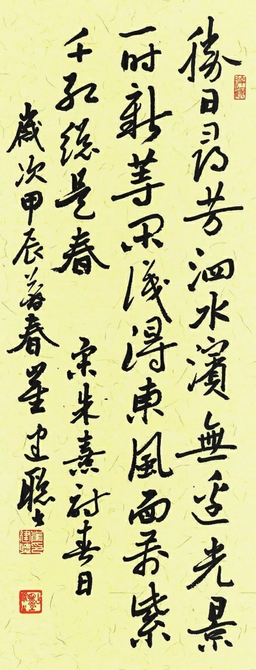 勝日尋芳泗水濱無邊光景
一时新等閑識得東風面萬紫
千紅總是春 宋朱熹詩春日
歲次甲辰春董建聰